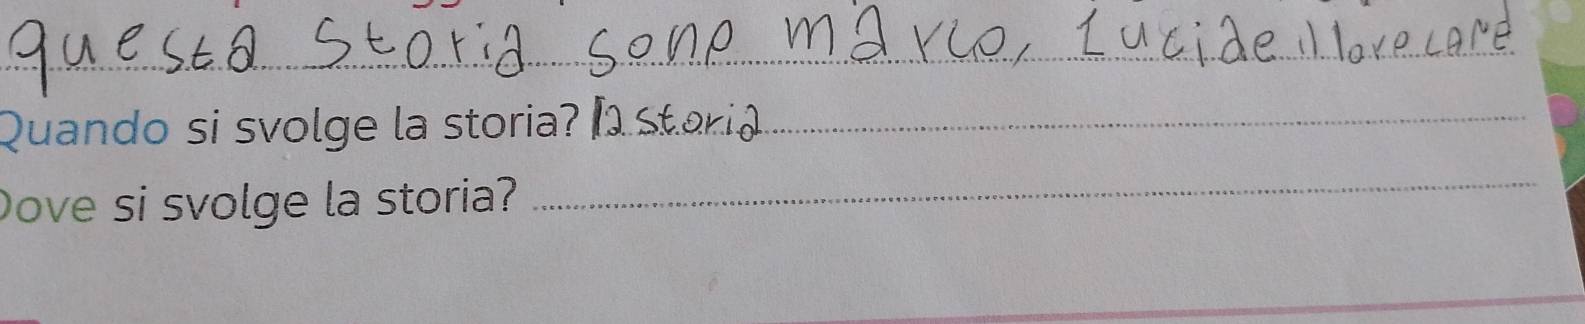 questa storia sono marco, Lucia e il loro cane
Quando si svolge la storia? la storia
Dove si svolge la storia?